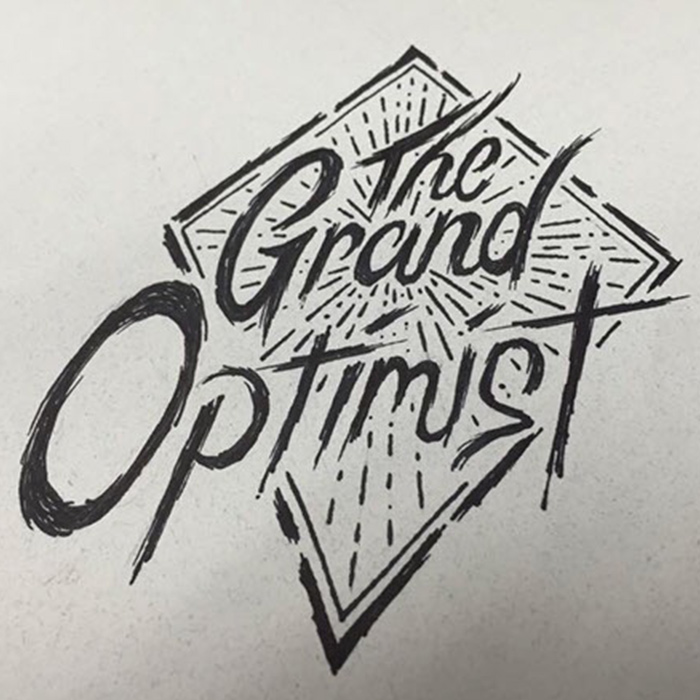 The
Grand
Optimist